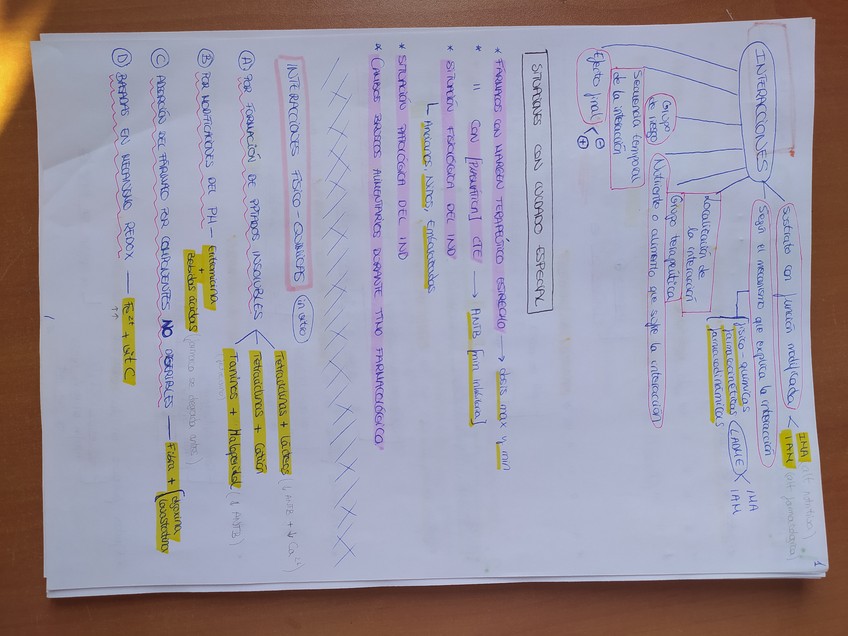 1
INTERACCIONES
Sustrato con función modificada < IMA (alt nutritivo)
IAM (alt farmacológica)
Según el mecanismo que explica la interacción
físico-químicas
farmacocinéticas (LADME) IMA
farmacodinámicas IAM
Localización de
la interacción
Grupo terapéutica
Nutriente o alimento que sufre la interacción
Grupo
de riesgo
Secuencia temporal
de la interacción
Efecto final < ⊖
⊕
SITUACIONES CON CUIDADO ESPECIAL
* FÁRMACOS CON MARGEN TERAPÉUTICO ESTRECHO → dosis max y min
* " CON [PLASMÁTICA] CTE → ANTB [min inhibitoria]
* SITUACIÓN FISIOLÓGICA DEL IND
↳ Ancianos, Niños, Embarazadas
* SITUACIÓN PATOLÓGICA DEL IND
* CAMBIOS BRUSCOS ALIMENTARIOS DURANTE TTMO FARMACOLÓGICO
INTERACCIONES FÍSICO-QUÍMICAS
A) POR FORMACIÓN DE PPTADOS INSOLUBLES < Tetraciclinas + Lácteos (↓ ANTB + ↓ Ca²⁺)
Tetraciclinas + Cationes
Taninos + Haloperidol (↓ ANTB)
B) POR MODIFICACIONES DEL PH — Eritromicina
+
Bebidas ácidas
C) ADSORCIÓN DEL FÁRMACO POR COMPONENTES NO DIGERIBLES — Fibra + [digoxina
lovastatina
D) BASADAS EN MECANISMO REDOX — Fe²⁺ + vit C
↑↑